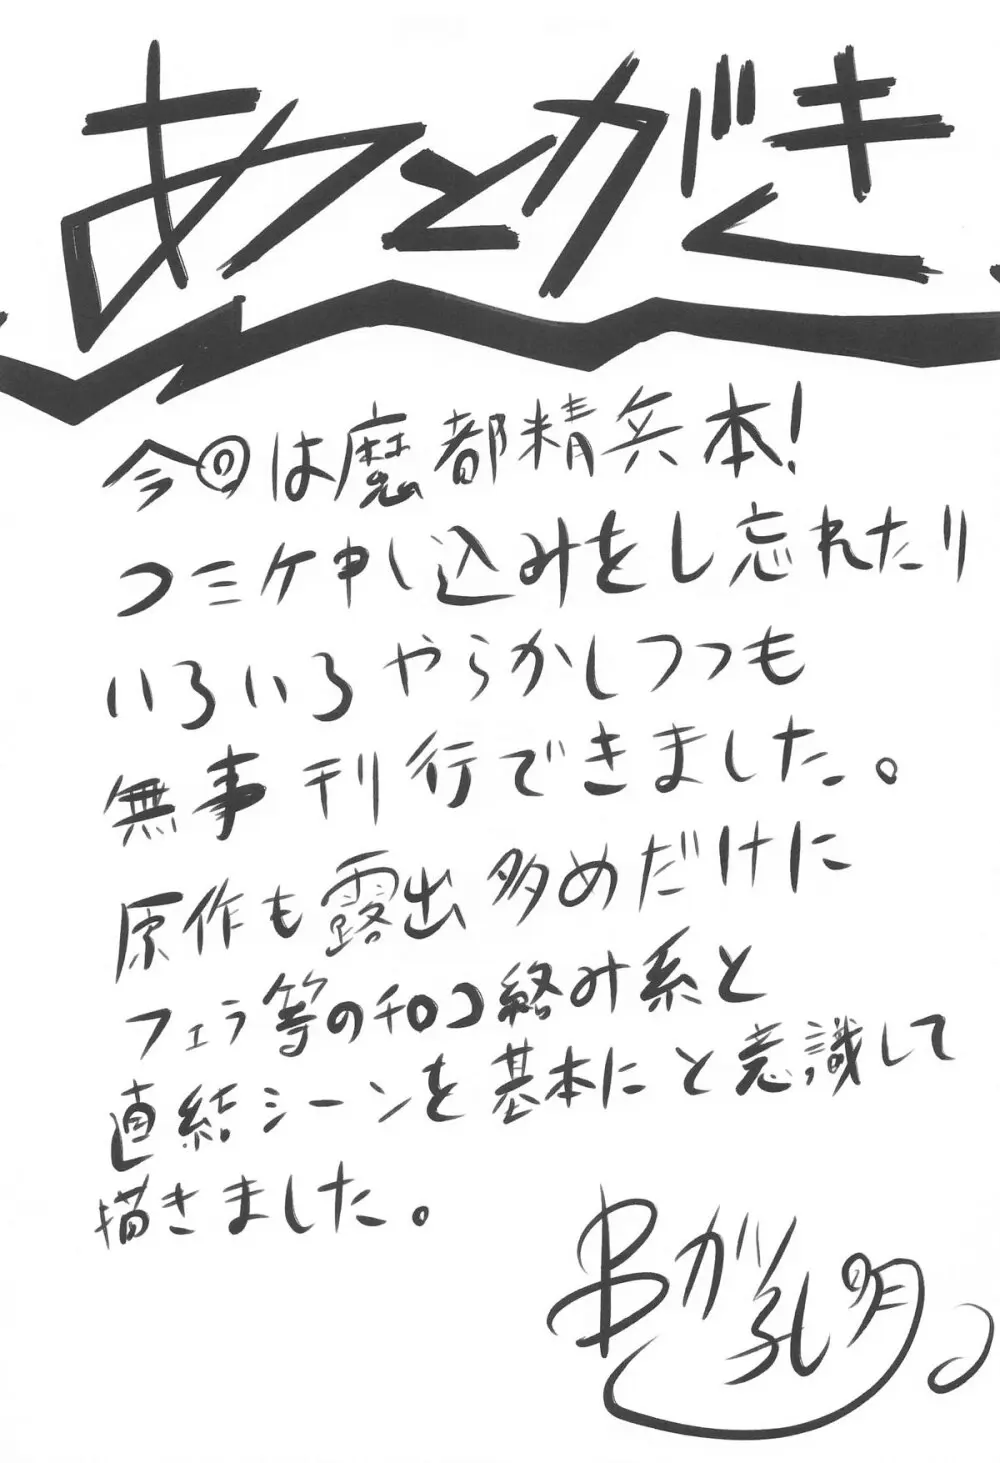 あとがき
今回は魔都精兵本!
コミケ申し込みをし忘れたり
いろいろやらかしつつも
無事刊行できました。
原作も露出多めだけに
フェラ等のチロコ絡み系と
直結シーンを基本にと意識して
描きました。
串が孔明。